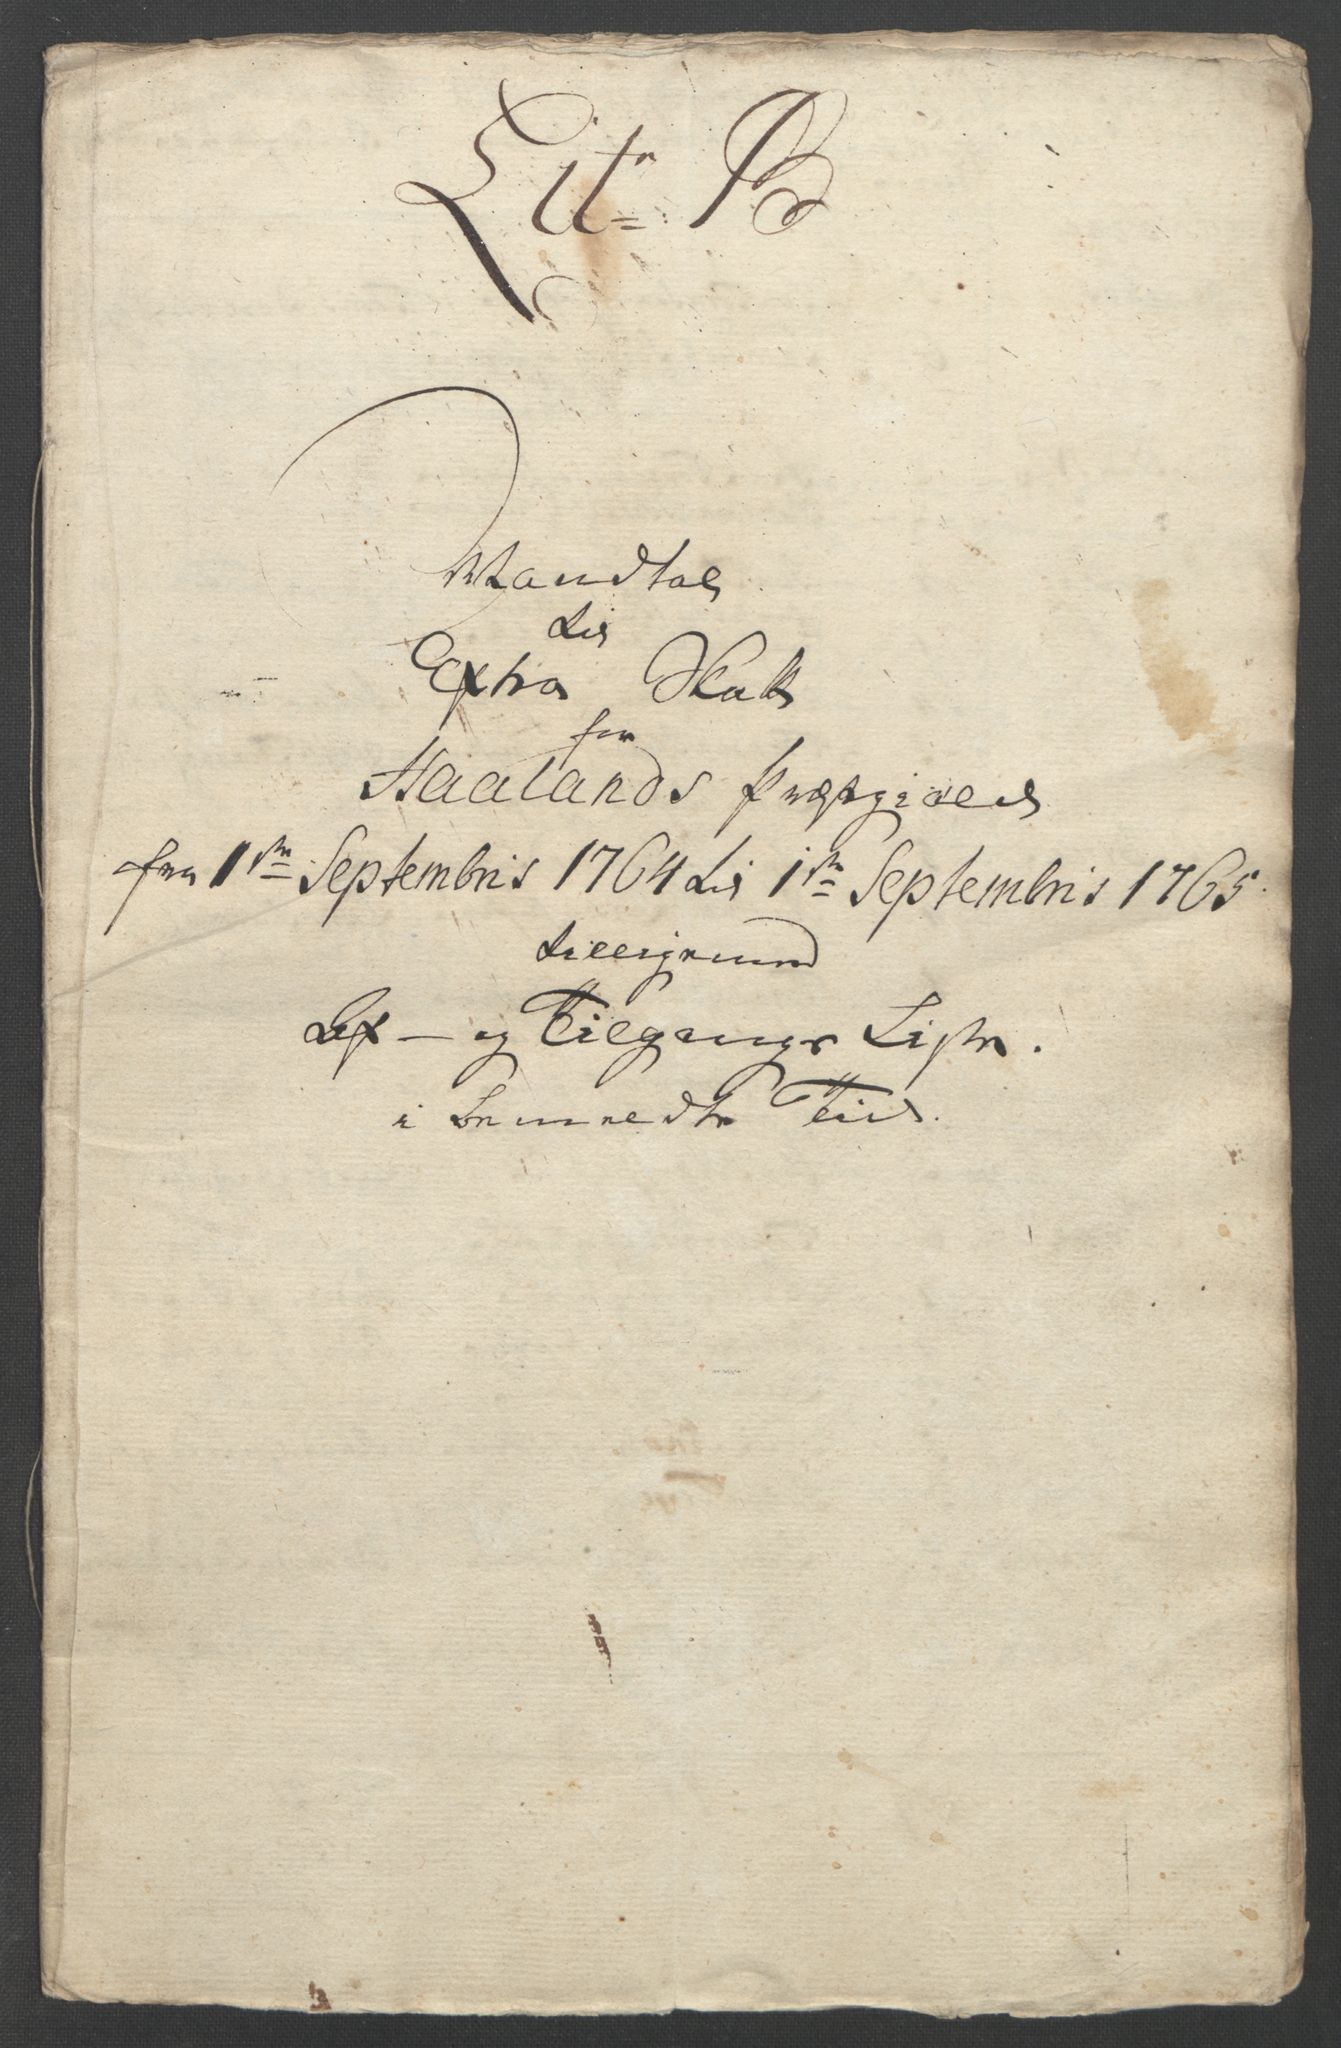 Litr B
Mandtal
til
Extra Skatt
for
Haalands Præstegield
fra 1ste Septembris 1764 til 1ste Septembris 1765.
tilligemed
Af- og Tilgangs Liste.
i bemeldte Tiid.